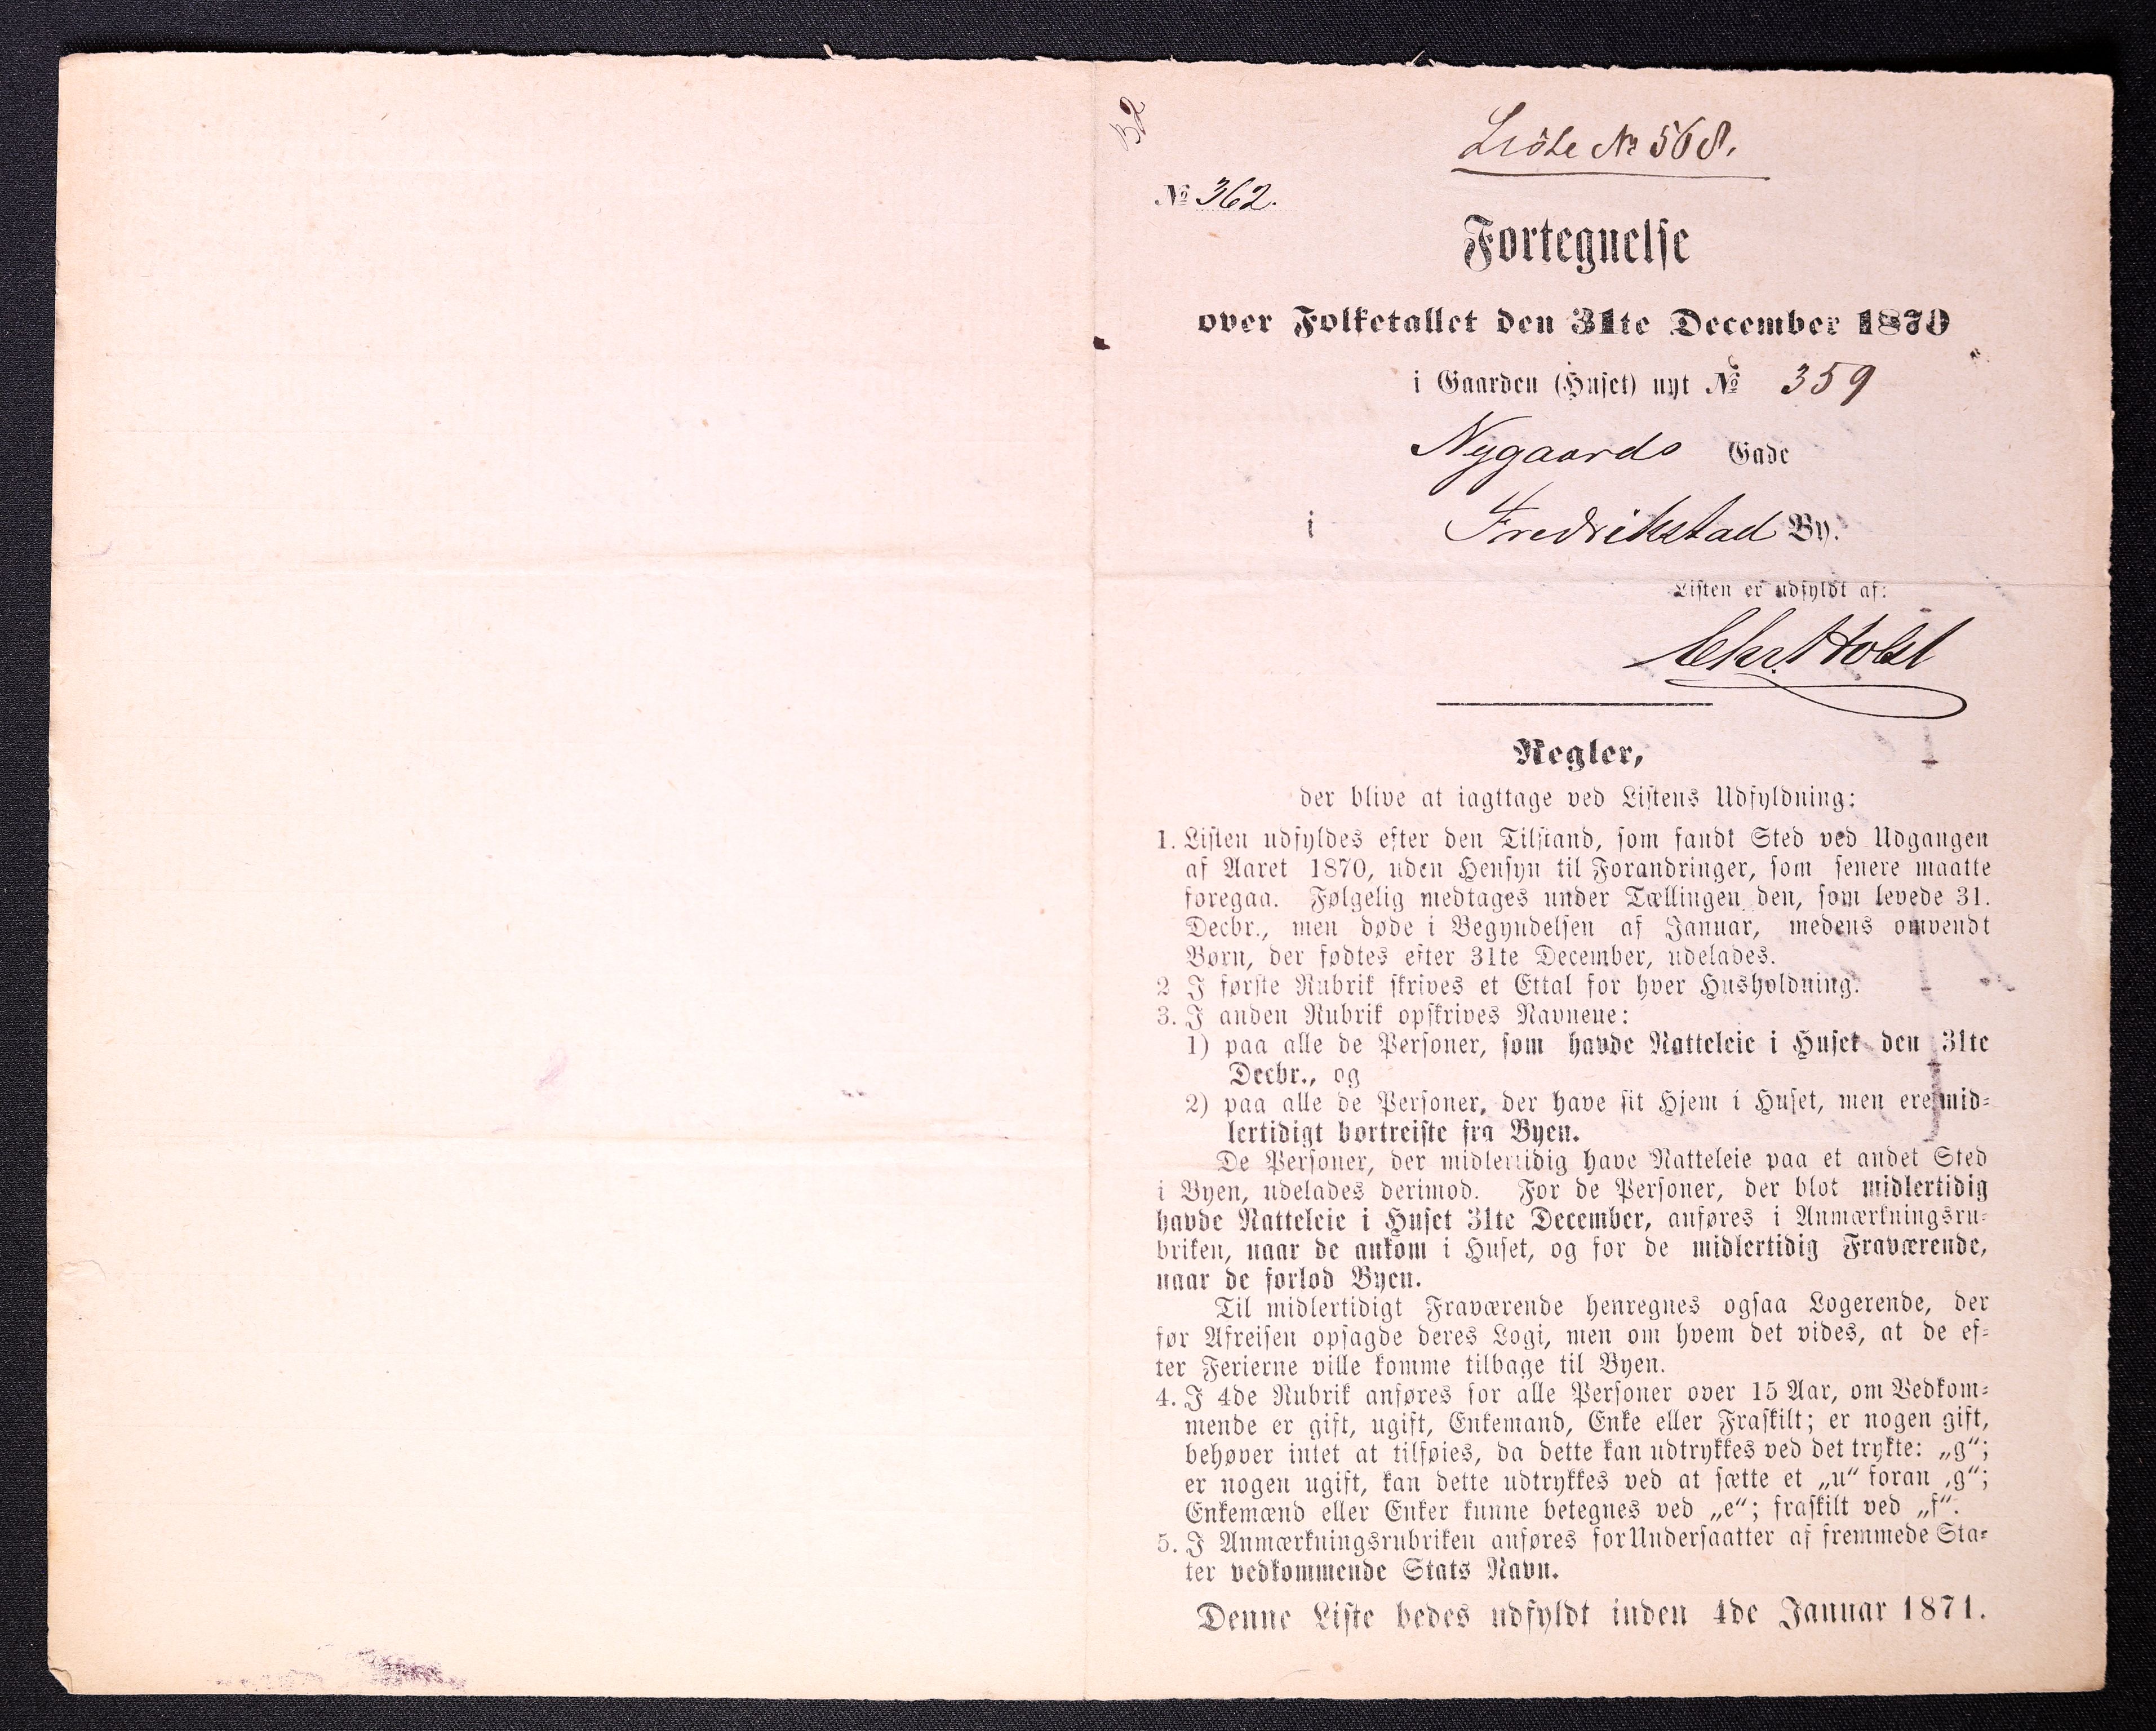 52
Liste No 568.
No 362.
Fortegnelse
over Folketallet den 31te December 1870
i Gaarden (Huset) nyt No 359
Nygaards Gade
i Fredrikstad By.
Listen er udfyldt af:
Chr. Holst
Regler,
der blive at iagttage ved Listens Udfyldning:
1. Listen udfyldes efter den Tilstand, som fandt Sted ved Udgangen
af Aaret 1870, uden Hensyn til Forandringer, som senere maatte
foregaa. Følgelig medtages under Tællingen den, som levede 31.
Decbr., men døde i Begyndelsen af Januar, medens omvendt
Børn, der fødtes efter 31te December, udelades.
2 I første Rubrik skrives et Ettal for hver Husholdning.
3. I anden Rubrik opskrives Navnene:
1) paa alle de Personer, som havde Natteleie i Huset den 31te
Decbr., og
2) paa alle de Personer, der have sit Hjem i Huset, men ere mid-
lertidigt bortreiste fra Byen.
De Personer, der midlertidig have Natteleie paa et andet Sted
i Byen, udelades derimod. For de Personer, der blot midlertidig
havde Natteleie i Huset 31te December, anføres i Anmærkningsru-
briken, naar de ankom i Huset, og for de midlertidig Fraværende,
naar de forlod Byen.
Til midlertidigt Fraværende henregnes ogsaa Logerende, der
før Afreisen opsagde deres Logi, men om hvem det vides, at de ef-
ter Ferierne ville komme tilbage til Byen.
4. I 4de Rubrik anføres for alle Personer over 15 Aar, om Vedkom-
mende er gift, ugift, Enkemand, Enke eller Fraskilt; er nogen gift,
behøver intet at tilføies, da dette kan udtrykkes ved det trykte: „g“;
er nogen ugift, kan dette udtrykkes ved at sætte et „u“ foran „g“;
Enkemænd eller Enker kunne betegnes ved „e“; fraskilt ved „f“.
5. I Anmærkningsrubriken anføres for Undersaatter af fremmede Sta-
ter vedkommende Stats Navn.
Denne Liste bedes udfyldt inden 4de Januar 1871.